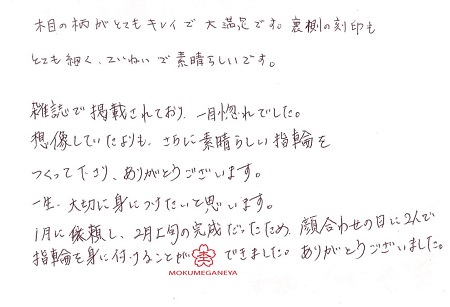 木目の柄がとてもキレイで大満足です。裏側の刻印も
とても細く、ていねいで素晴らしいです。
雑誌で掲載されており、一目惚れでした。
想像していたよりも、さらに素晴らしい指輪を
つくって下さり、ありがとうございます。
一生、大切に身につけたいと思います。
1月に依頼し、2月上旬の完成だったため、顔合わせの日に2人で
指輪を身に付けることができました。ありがとうございました。
MOKUMEGANEYA